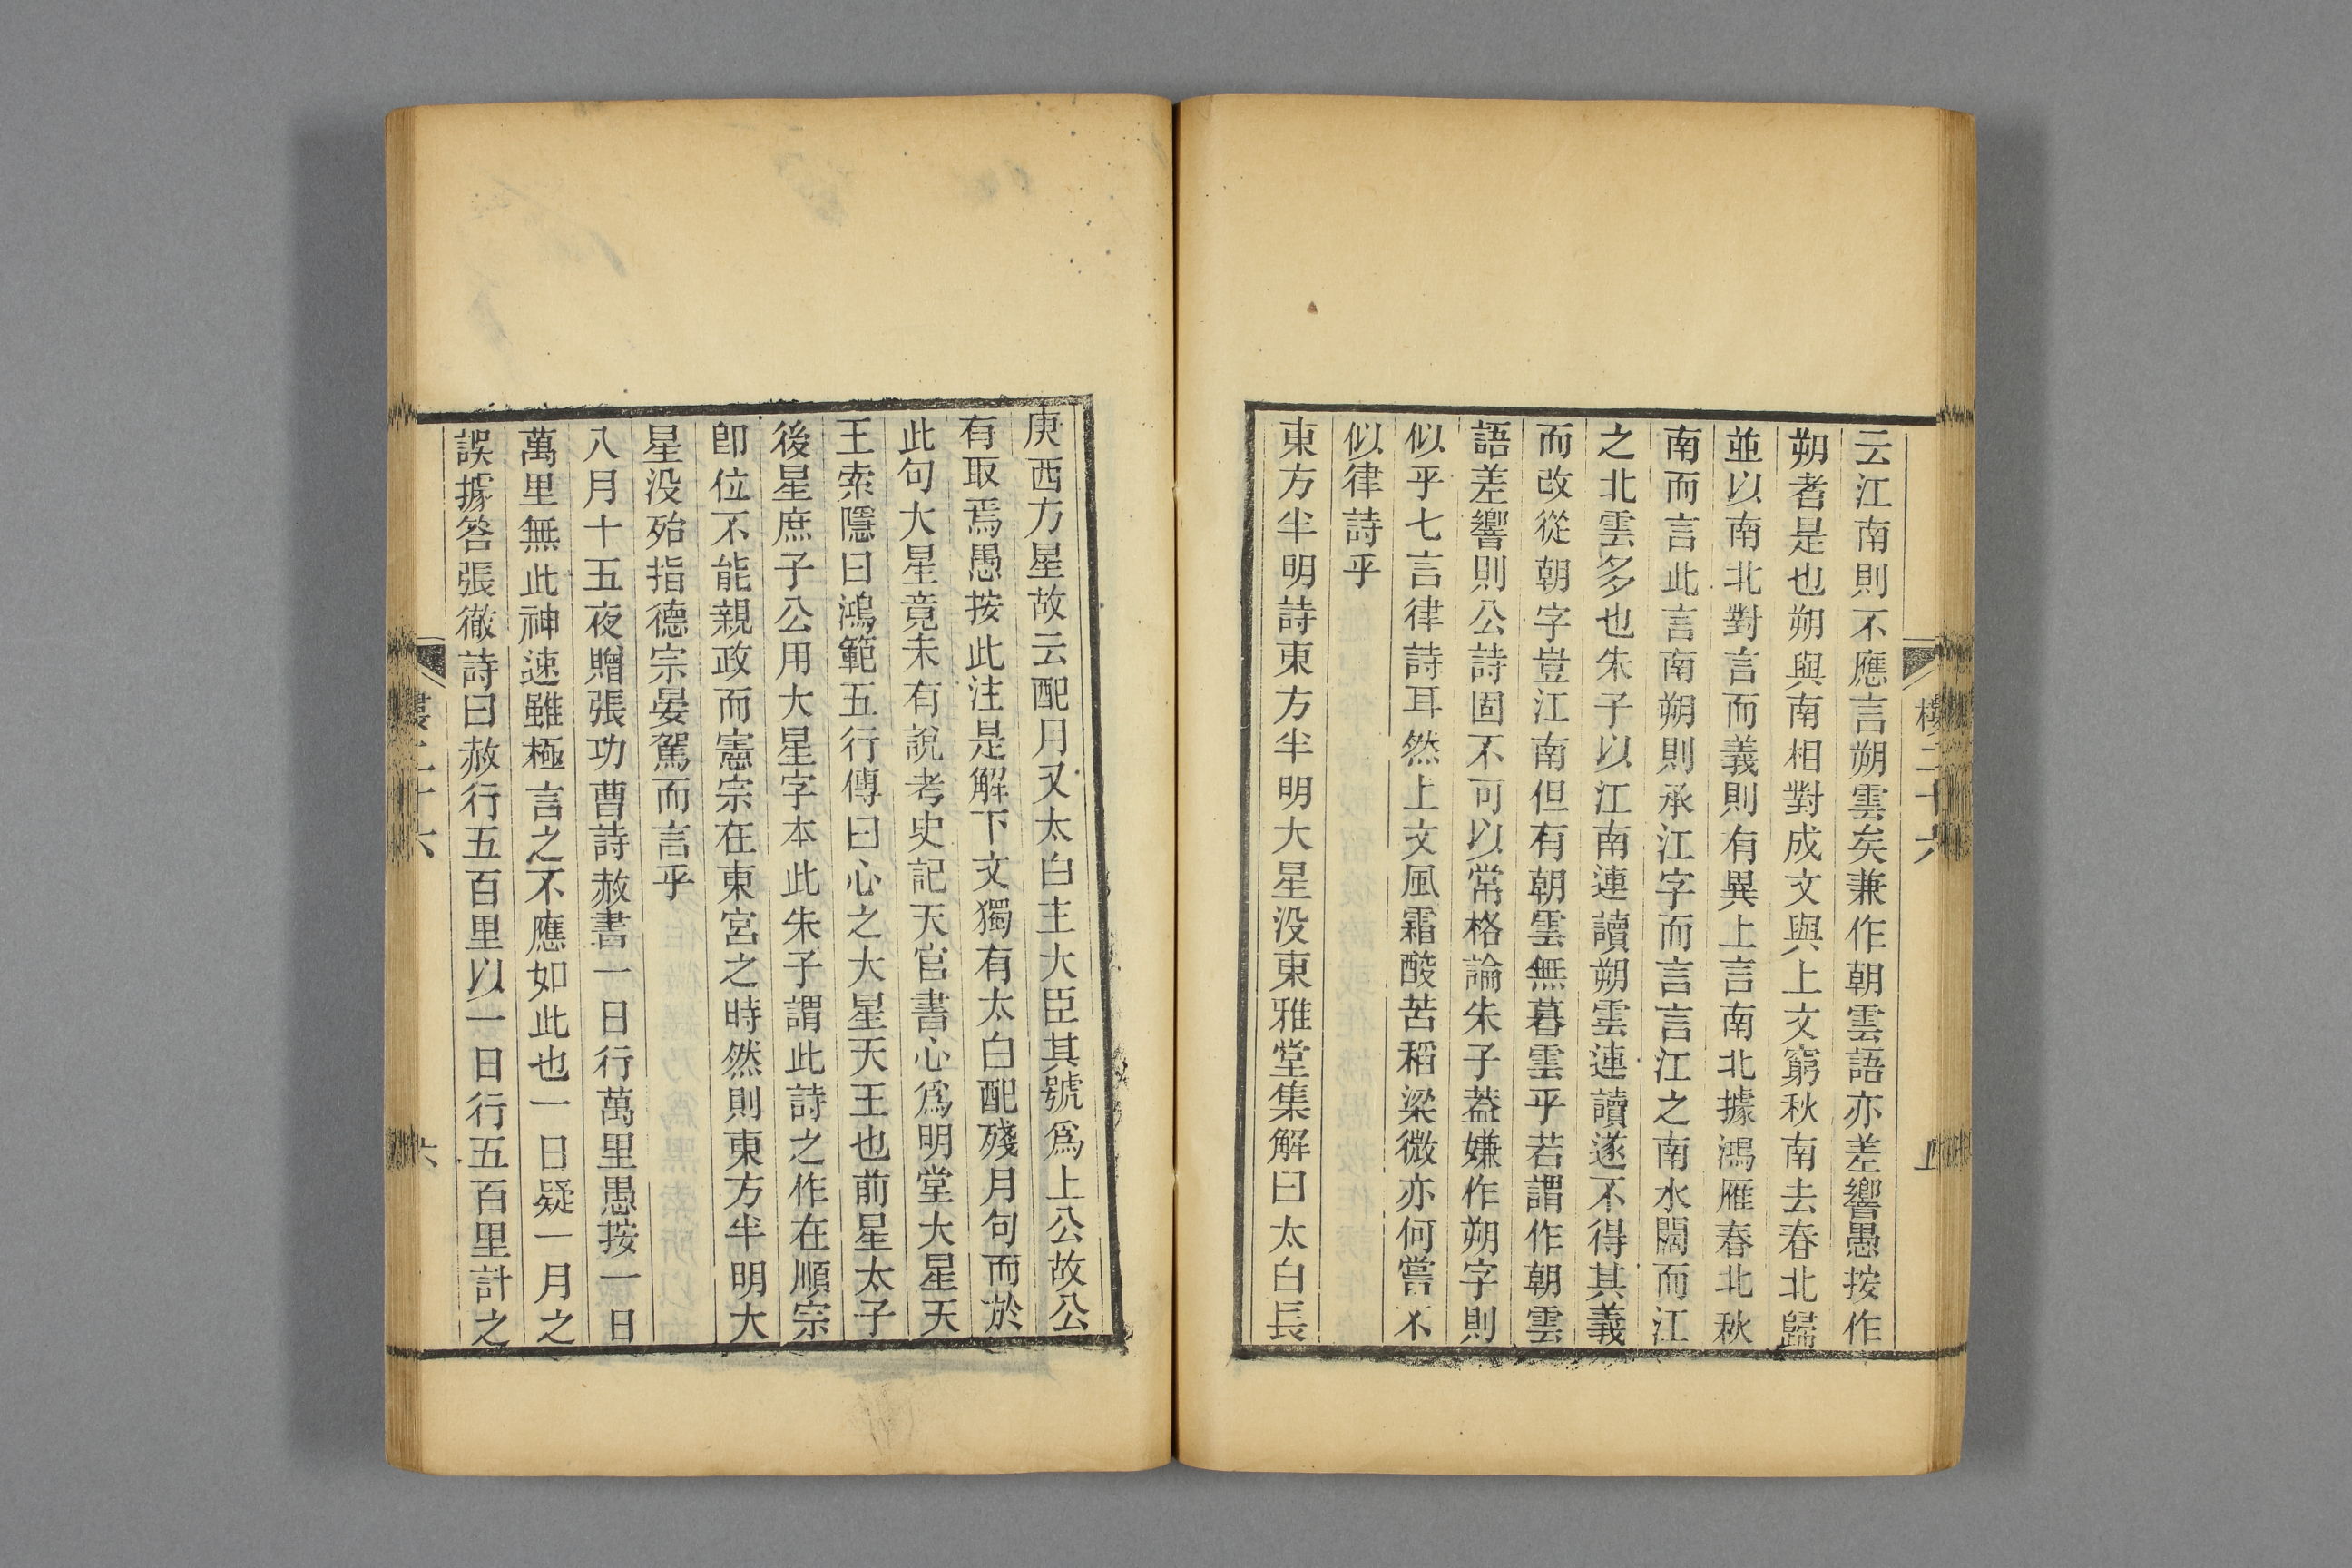 云江南則不應言朔雲矣兼作朝雲語亦差響愚按作
朔者是也朔與南相對成文與上文窮秋南去春北歸
並以南北對言而義則有異上言南北據鴻雁春北秋
南而言此言南朔則承江字而言言江之南水闊而江
之北雲多也朱子以江南連讀朔雲連讀遂不得其義
而改從朝字豈江南但有朝雲無暮雲乎若謂作朝雲
語差響則公詩固不可以常格論朱子葢嫌作朔字則
似乎七言律詩耳然上文風霜酸苦稻粱微亦何嘗不
似律詩乎
東方半明詩東方半明大星没東雅堂集解曰太白長
庚西方星故云配月又太白主大臣其號爲上公故公
有取焉愚按此注是解下文獨有太白配殘月句而於
此句大星竟未有說考史記天官書心爲明堂大星天
王索隱曰鴻範五行傳曰心之大星天王也前星太子
後星庶子公用大星字本此朱子謂此詩之作在順宗
卽位不能親政而憲宗在東宮之時然則東方半明大
星没殆指德宗晏駕而言乎
八月十五夜贈張功曹詩赦書一日行萬里愚按一日
萬里無此神速雖極言之不應如此也一日疑一月之
誤據答張徹詩曰赦行五百里以一日行五百里計之
樓二十六
六